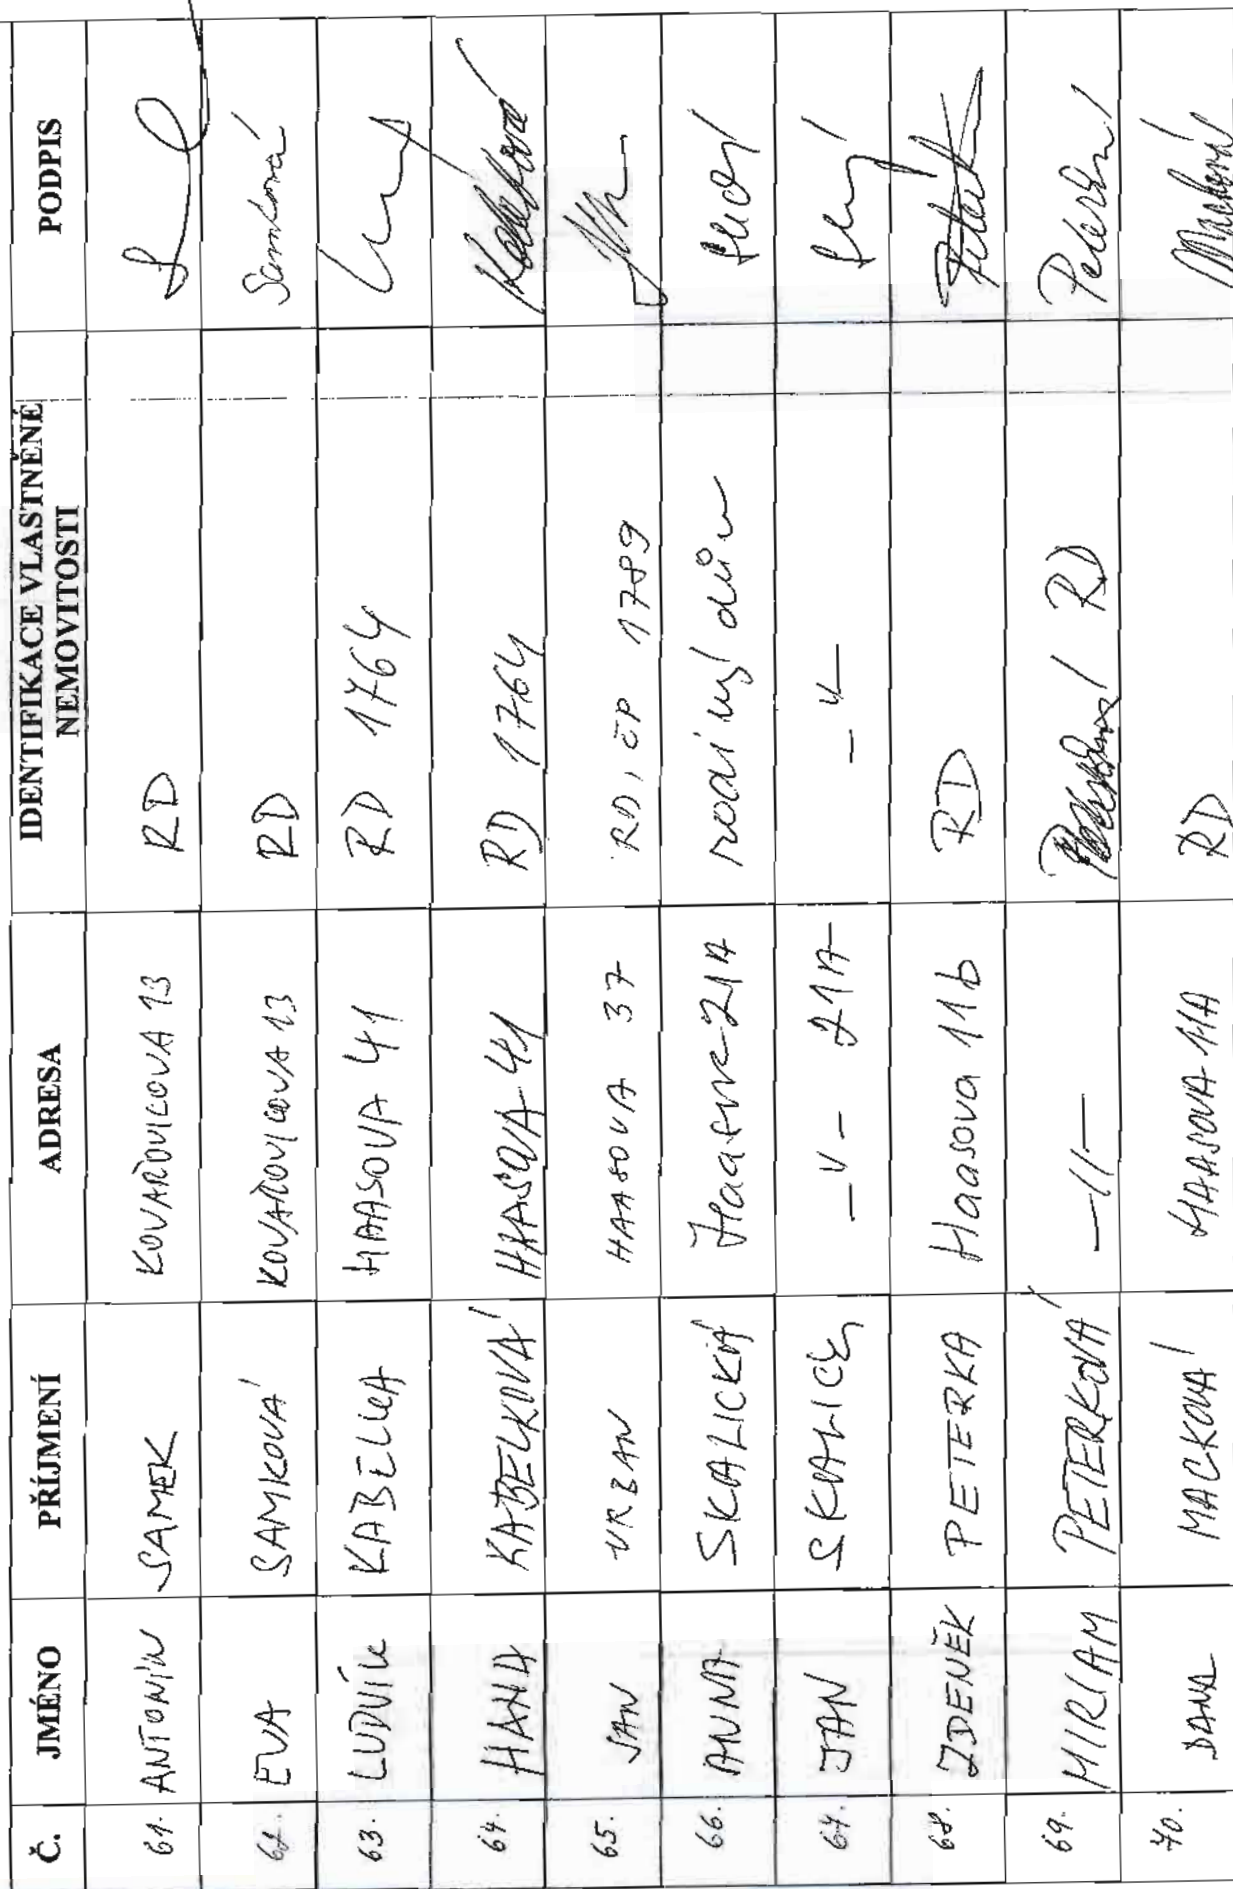 Č. JMÉNO PŘÍJMENÍ ADRESA IDENTIFIKACE VLASTNĚNÉ NEMOVITOSTI PODPIS
61. ANTONÍN SAMEK KOVAŘOVICOVA 13 RD
62. EVA SAMKOVÁ KOVAŘOVICOVA 13 RD Samková
63. LUDVÍK KABELKA HAASOVA 41 RD 1764
64. HANA KABELKOVÁ HAASOVA 41 RD 1764
65. JAN URBAN HAASOVA 37 RD, ČP 1789
66. ANNA SKALICKÁ Haasova 21A rodinný dům
67. JAN SKALICKÝ –〃– 21A –〃–
68. ZDENĚK PETERKA Haasova 11b RD
69. MIRIAM PETERKOVÁ –〃– RD
70. DANA MACKOVÁ HAASOVA 11A RD